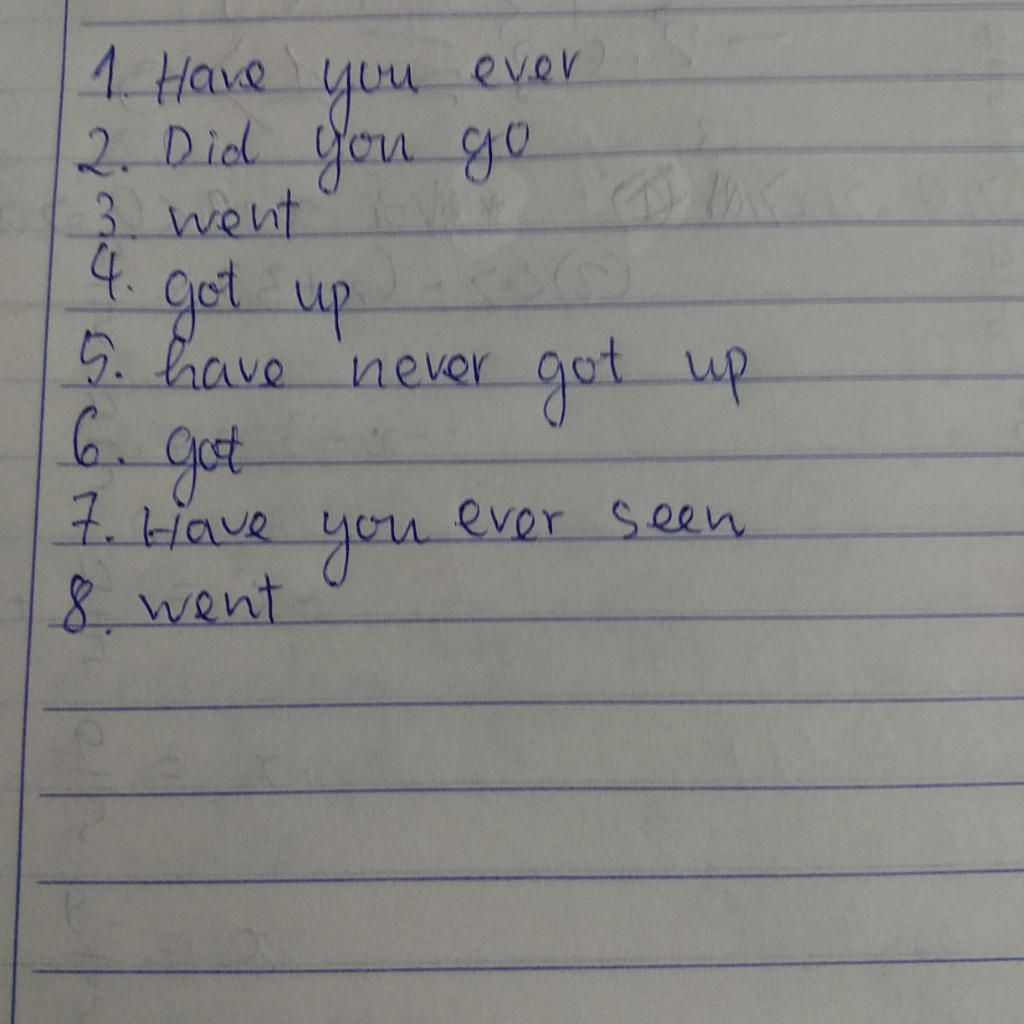 1. Have you ever
2. Did you go
3. went
4. got up
5. have never got up
6. got
7. Have you ever seen
8. went